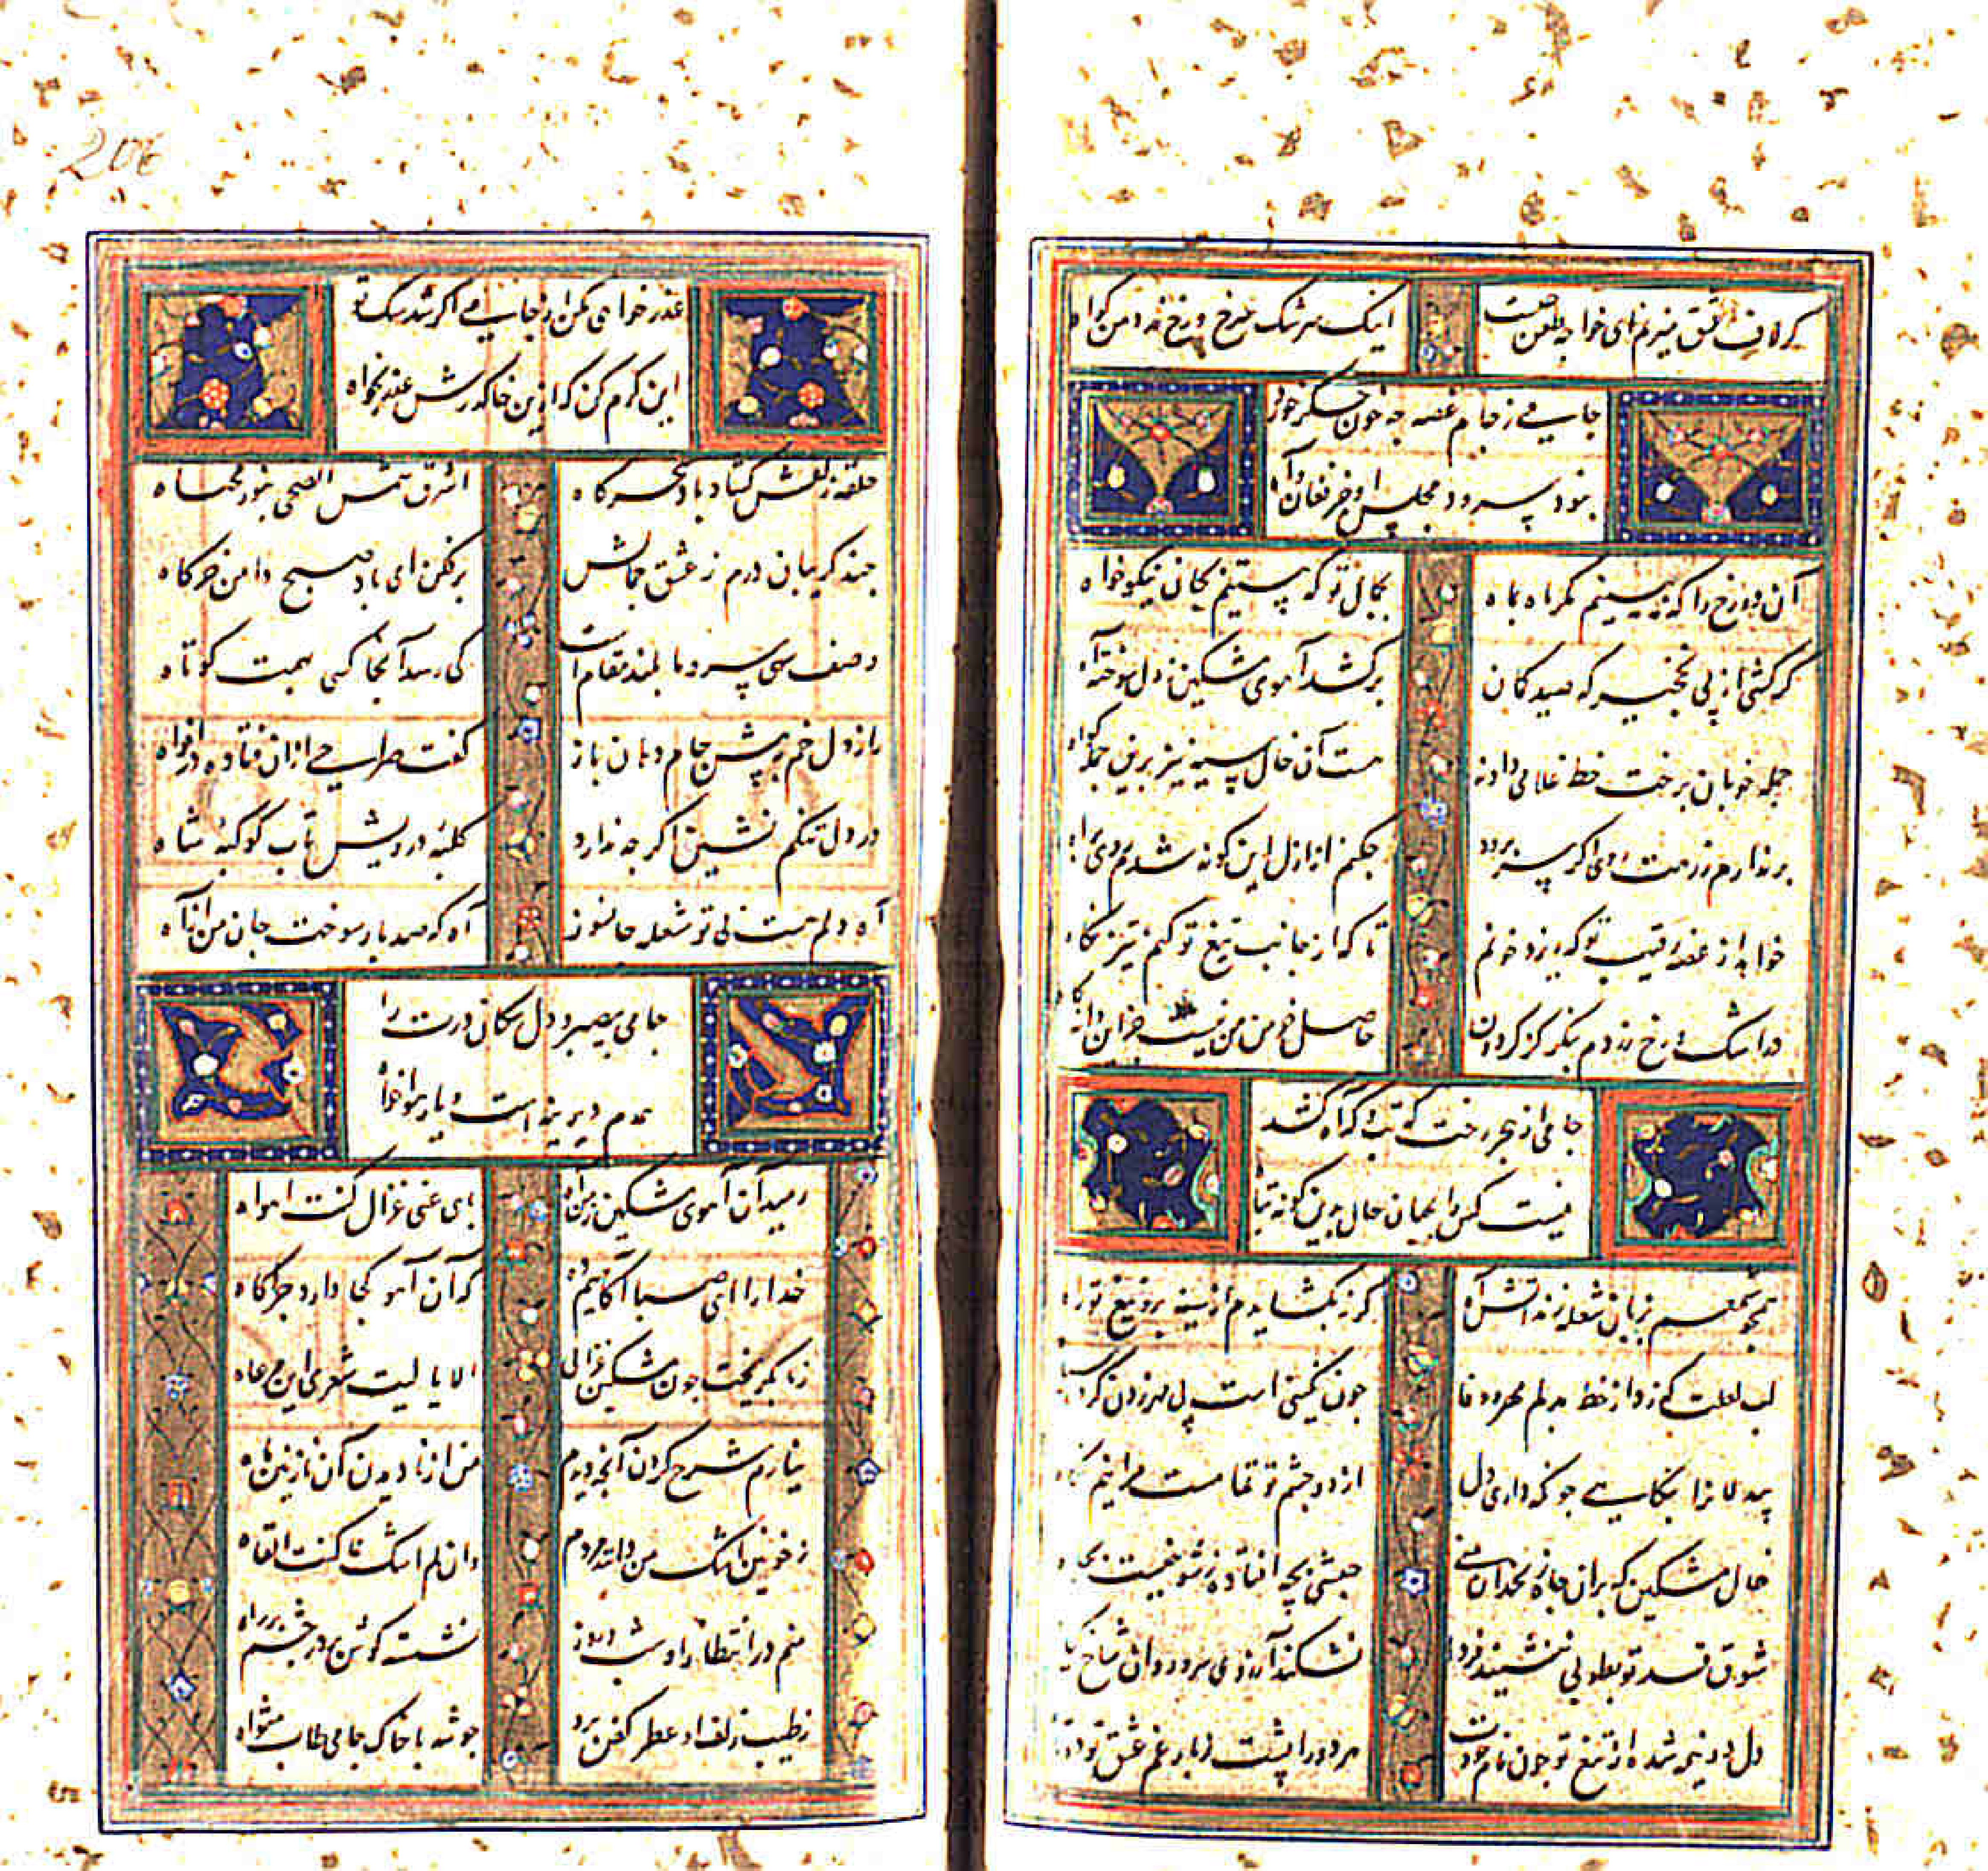 گر لاف عشق میزنم ای خواجه طعن چیست
اینک سرشک سرخ و رخ زرد من گواه
جامی ز جام غصه چو خون جگر خورد
نبود سرود مجلس او جز فغان و آه
آن دو رخ را که نبینیم مگر ماه بماه
بکمال تو که هستیم بجان نیکوخواه
گر کشی ناز پی نخجیر که صید کان
برکشد آهوی مشکین ز دل سوخته آه
جمله خوبان برخت خط غلامی دادند
هست آن خال سیه نیز برین جمله گواه
برندارم ز رهت روی اگر سر برود
چکنم از ازل این گونه شدم روی براه
خواهد از غصه رقیب تو که ریزد خونم
تا که از جانب تیغ تو کنم تیز نگاه
در اشک و رخ زردم بنگر کز گردون
حاصل خرمن من نیست جز آن دانه و کاه
جامی از هجر رخت گو شب و گاه کشد
نیست کس را بجهان حال بدین گونه تباه
همچو شمعم بزبان شعله زند آتش آه
گرنه بگشایدم از سینه برو تیغ تو راه
لب لعلت که زد از خط بدلم مهر وفا
چون نگینی است پی مهر زدن کرده سیاه
بیدلانرا بنگاهی چو نگه داری دل
از دو چشم تو تمناست مرا نیم نگاه
خال مشکین که بران چاه زنخدان بینی
حبشی بچه افتاده بشوخیست بچاه
شوق قد تو بطوبی ننشیند فردا
نشکند آرزوی سرو روان شاخ گیاه
دل دو نیم شده از تیغ تو چون نام خودت
هر دو را پشت ز بار غم عشق تو دوتاه
204
عذر خواهی مکن از جامی اگر شد سگ تو
این کرم کن که ازین خاک درش عذر مخواه
حلقه زلفش گشاد باد سحرگاه
اشرق شمس الضحی بنور محیاه
چند گریبان درم ز عشق جمالش
برفکن ای باد صبح دامن خرگاه
وصف سهی سرو ما بلند مقام است
کی رسد آنجا کسی بهمت کوتاه
راز دل خم به پیش جام دهان باز
گفت صراحی ازان فتاده در افواه
در دل تنگم نشین اگرچه ندارد
کلبه درویش تاب کوکبه شاه
آه دلم هست بی تو شعله جانسوز
آه که صد بار سوخت جان من از آه
جامی بیصبر و دل سگان درت را
همدم دیرینه است و یار هواخواه
رمید آن آهوی مشکین ز من آه
بمن غنی غزال کنت اهواه
خدا را ای صبا آگاهیم ده
که آن آهو کجا دارد چراگاه
ز ما بگریخت چون مشکین غزالی
الا یا لیت شعری این مرعاه
نیارم شرح کردن آنچه دیدم
من از نادیدن آن نازنین ماه
ز خونین اشک من دانند مردم
وان لم اشک ما کنت القاه
منم در انتظار او شب و روز
نشسته گوش بر در چشم بر راه
ز طیب زلف او عطر کفن برد
چو شد با خاک جامی طاب مثواه